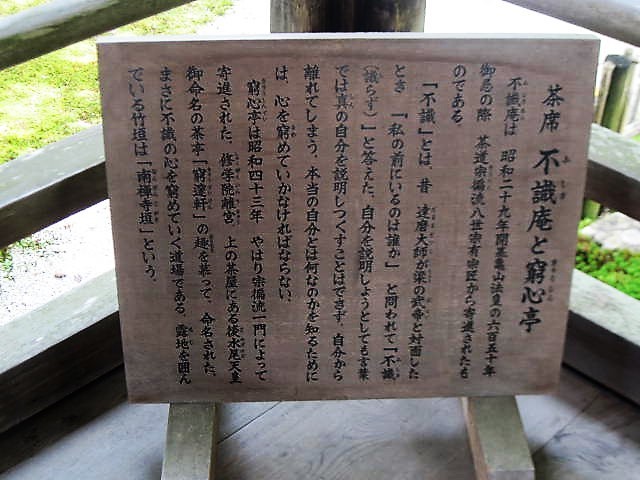 茶席 不識庵と窮心亭
不識庵は 昭和二十九年開基亀山法皇の六百五十年
御忌の際 茶道宗徧流八世宗有宗匠から寄進されたも
のである。
「不識」とは、昔 達磨大師が梁の武帝と対面した
とき 「私の前にいるのは誰か」 と問われて「不識
（識らず）」と答えた。自分を説明しようとしても言葉
では真の自分を説明しつくすことはできず、自分から
離れてしまう。本当の自分とは何なのかを知るために
は、心を窮めていかなければならない。
窮心亭は昭和四十三年 やはり宗徧流一門によって
寄進された。修学院離宮、上の茶屋にある後水尾天皇
御命名の茶亭「窮邃軒」の趣を慕って、命名された。
まさに不識の心を窮めていく道場である。露地を囲ん
でいる竹垣は「南禅寺垣」という。